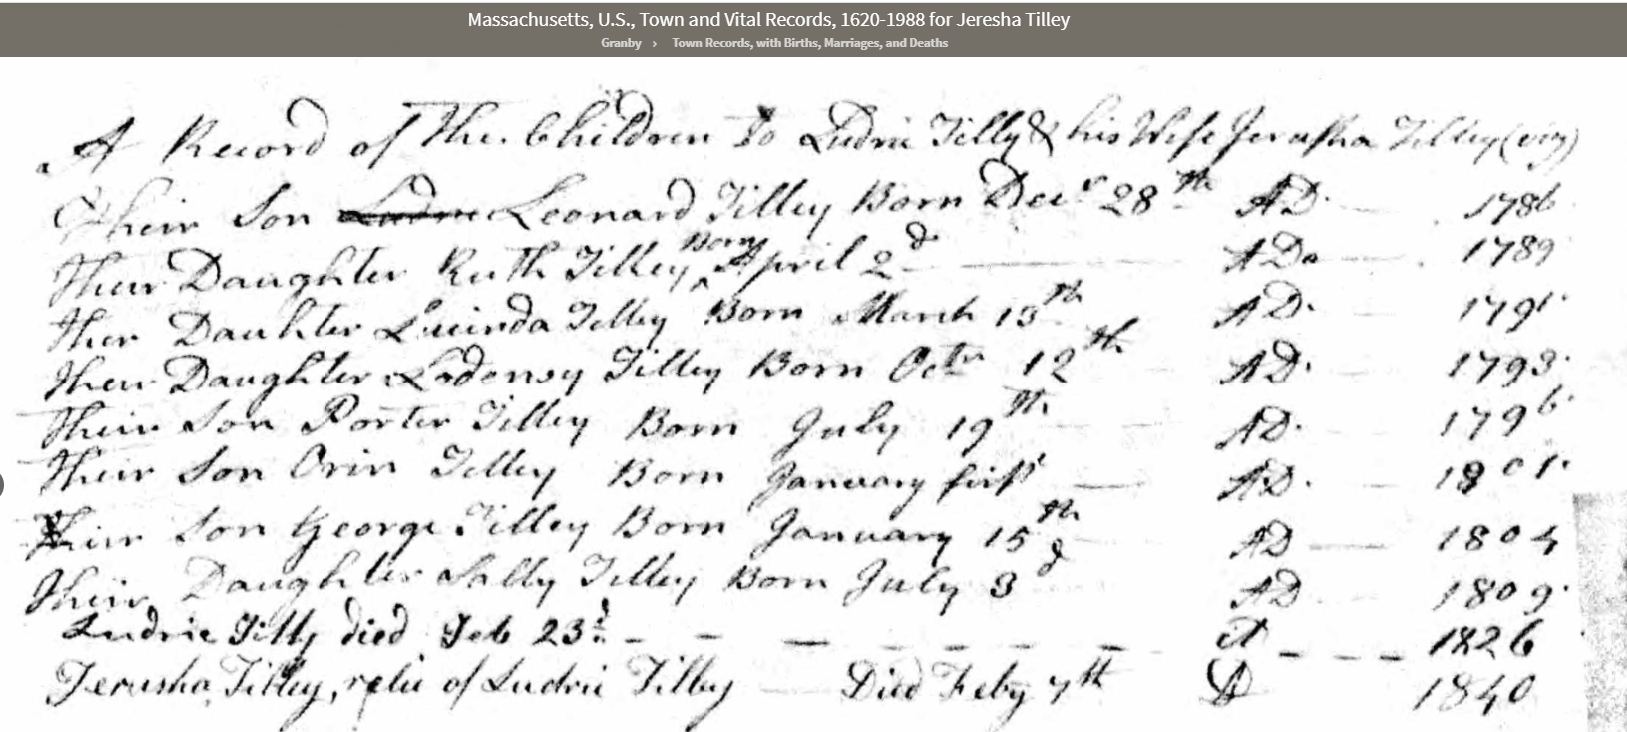 Massachusetts, U.S., Town and Vital Records, 1620-1988 for Jeresha Tilley
Granby › Town Records, with Births, Marriages, and Deaths
A Record of the Children to Ludric Tilly & his Wife Jerusha Tilley (viz)
Their Son Ludric Leonard Tilley Born Decr 28th AD 1786
Their Daughter Ruth Tilley Born April 2d AD 1789
Ther Daughter Lucinda Tilley Born March 13th AD. 1791
Their Daughter Lodensy Tilley Born Octr 12th AD. 1793.
Their Son Porter Tilley Born July 19th AD. 1796.
Their Son Orin Tilley Born January first AD. 1801.
Their Son George Tilley Born January 15th AD 1804
Their Daughter Sally Tilley Born July 3d AD 1809.
Ludric Tilly died Feb 23d A 1826
Jerusha Tilley, relic of Ludric Tilley Died Feby 7th AD 1840